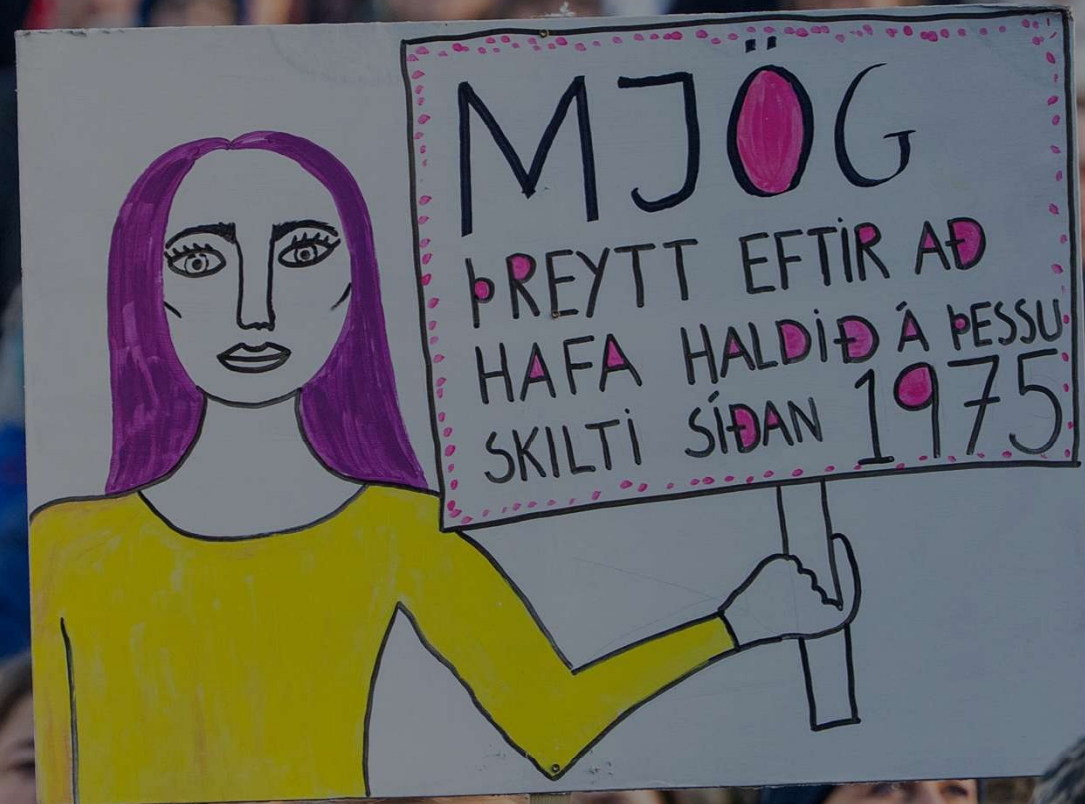 MJÖG
ÞREYTT EFTIR AÐ
HAFA HALDIÐ Á ÞESSU
SKILTI SÍÐAN 1975